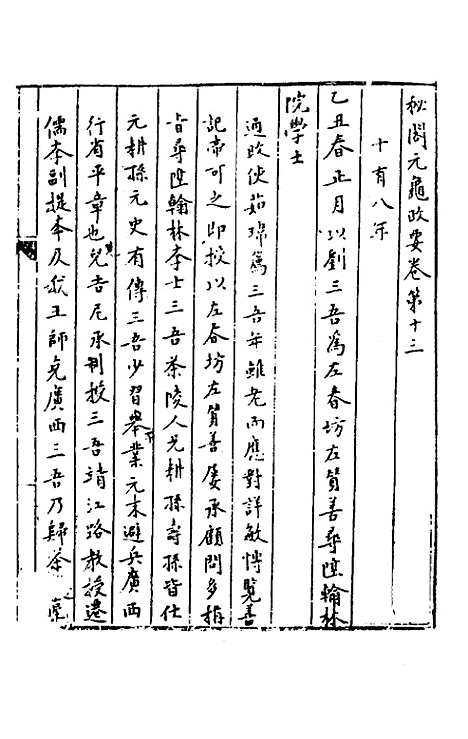 秘閣元龜政要卷第十三
十有八年
乙丑春正月以劉三吾爲左春坊左贊善尋陞翰林
院學士
通政使茹瑺薦三吾年雖老而應對詳敏博覽善
記帝可之即授以左春坊左贊善屡承顧問多稱
旨尋陞翰林李士三吾茶陵人兄耕孫壽孫皆仕
元耕孫元史有傳三吾少習舉業元末避兵廣西
行省平章也兒吉尼承制授三吾靖江路教授遷
儒李副提李及我王師克廣西三吾乃歸茶